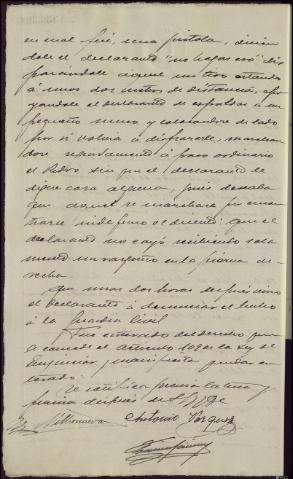 en mal fin, una pistola, dicien
dole el declarante "no hagas eso" dis
parandole aquel un tiro estando
á unos dos metros de distancia, apo
yandose el declarante de espaldas a un
pequeño muro y colocandose de lado
por si volvia á dispararle, marchan
dose repentinamente á paso ordinario
el Pedro sin que el declarante le
digera cosa alguna, pues deseaba
que aquel se marchara por encon
trarse indefenso el dicente: que el
declarante no cayó recibiendo sola
mente un rasponazo en la pierna de
recha.
Que unas dos horas despues vino
el declarante á denunciar el hecho
á la Guardia Civil
Fue enterado del derecho que
le concede el articulo 109 de la Ley de
Enjuiciar, y manifiesta quedar en
terado.
Se ratifica previa lectura y
firma despues de S.S. Doy fe
Villanueva Antonio Vazquez